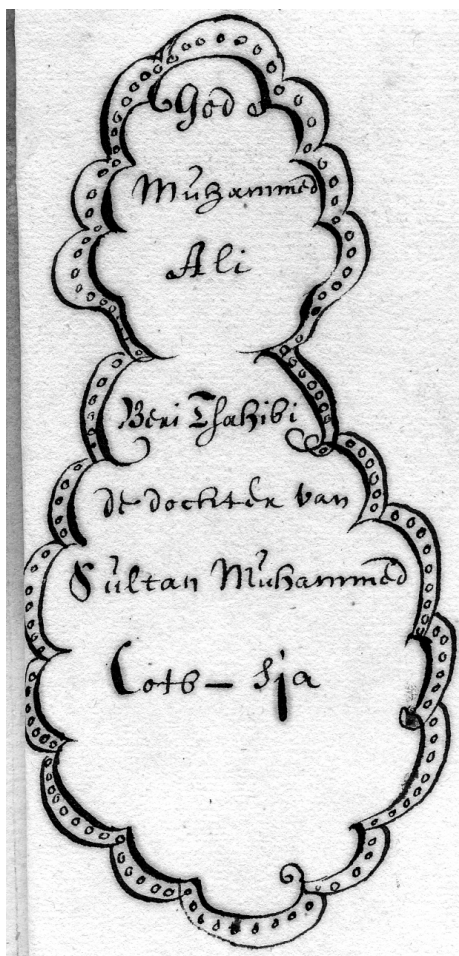 God
Muhammed
Ali
Beri Tsahibi
de dochter van
Sultan Muhammed
Cotb – Sja